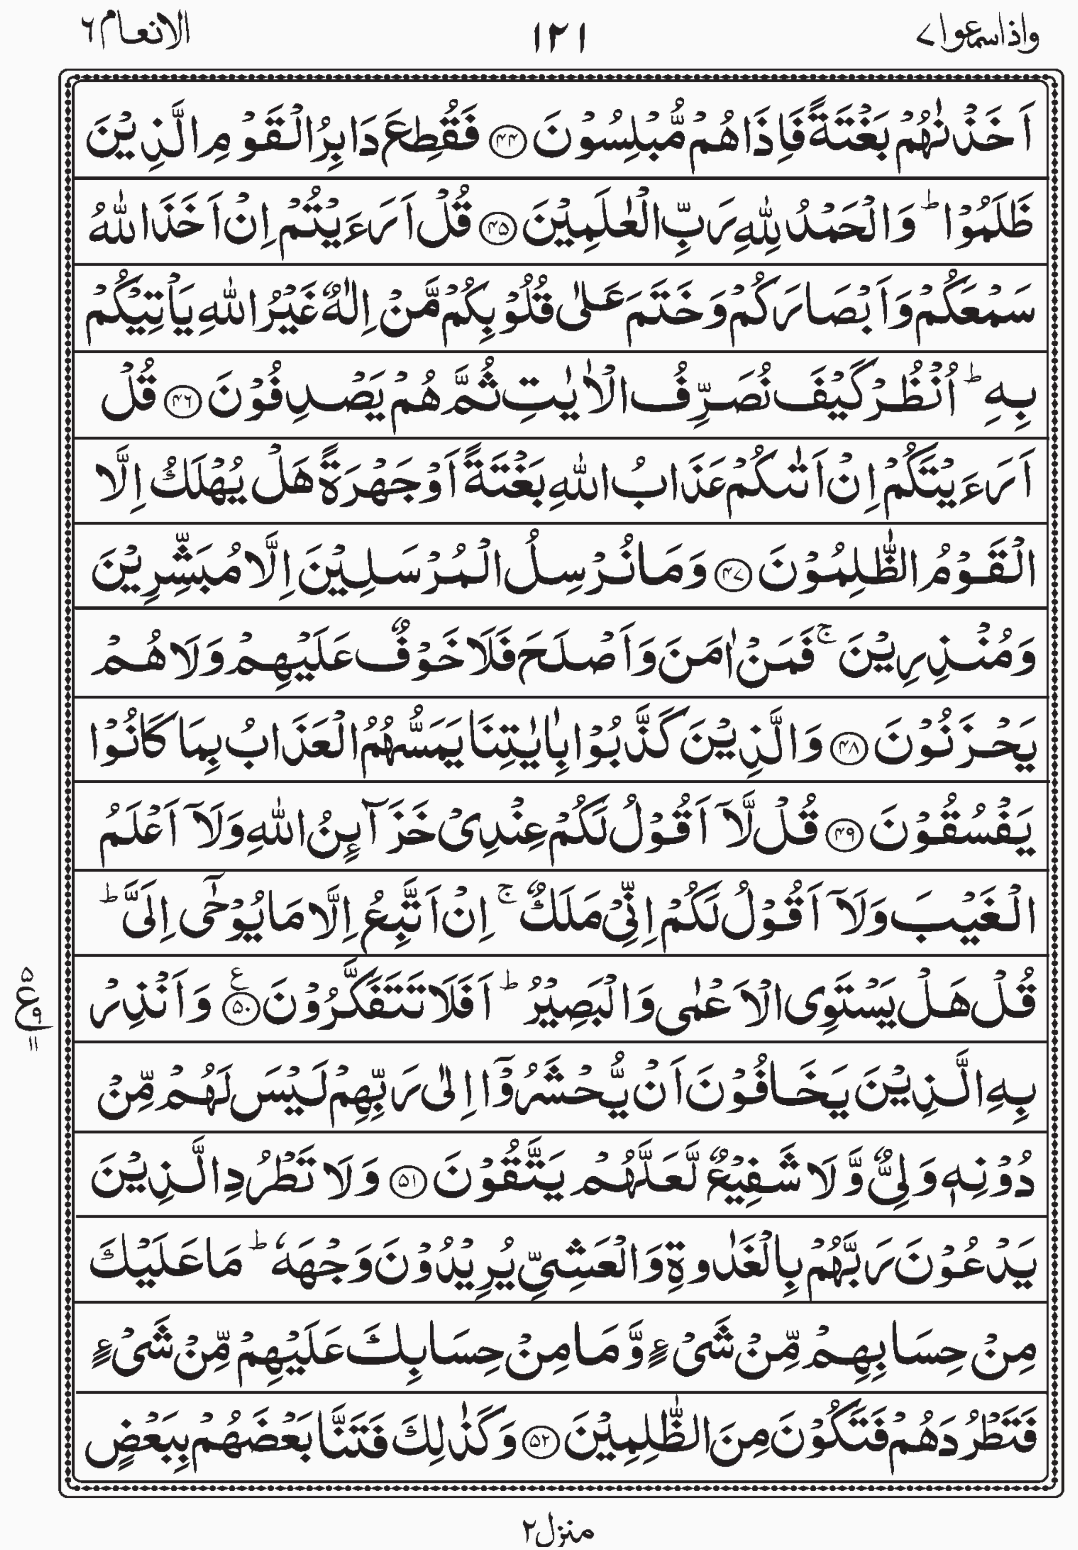 واذاسمعوا ٧ ١٢١ الانعام ٦
اَخَذْنٰهُمْ بَغْتَةً فَاِذَا هُمْ مُّبْلِسُوْنَ ﴿۴۴﴾ فَقُطِعَ دَابِرُ الْقَوْمِ الَّذِيْنَ
ظَلَمُوْا ؕ وَالْحَمْدُ لِلّٰهِ رَبِّ الْعٰلَمِيْنَ ﴿۴۵﴾ قُلْ اَرَءَيْتُمْ اِنْ اَخَذَ اللّٰهُ
سَمْعَكُمْ وَاَبْصَارَكُمْ وَخَتَمَ عَلٰى قُلُوْبِكُمْ مَّنْ اِلٰهٌ غَيْرُ اللّٰهِ يَاْتِيْكُمْ
بِهِ ؕ اُنْظُرْ كَيْفَ نُصَرِّفُ الْاٰيٰتِ ثُمَّ هُمْ يَصْدِفُوْنَ ﴿۴۶﴾ قُلْ
اَرَءَيْتَكُمْ اِنْ اَتٰىكُمْ عَذَابُ اللّٰهِ بَغْتَةً اَوْ جَهْرَةً هَلْ يُهْلَكُ اِلَّا
الْقَوْمُ الظّٰلِمُوْنَ ﴿۴۷﴾ وَمَا نُرْسِلُ الْمُرْسَلِيْنَ اِلَّا مُبَشِّرِيْنَ
وَمُنْذِرِيْنَ ۚ فَمَنْ اٰمَنَ وَاَصْلَحَ فَلَا خَوْفٌ عَلَيْهِمْ وَلَا هُمْ
يَحْزَنُوْنَ ﴿۴۸﴾ وَالَّذِيْنَ كَذَّبُوْا بِاٰيٰتِنَا يَمَسُّهُمُ الْعَذَابُ بِمَا كَانُوْا
يَفْسُقُوْنَ ﴿۴۹﴾ قُلْ لَّاۤ اَقُوْلُ لَكُمْ عِنْدِىْ خَزَآئِنُ اللّٰهِ وَلَاۤ اَعْلَمُ
الْغَيْبَ وَلَاۤ اَقُوْلُ لَكُمْ اِنِّىْ مَلَكٌ ۚ اِنْ اَتَّبِعُ اِلَّا مَا يُوْحٰۤى اِلَىَّ ؕ
قُلْ هَلْ يَسْتَوِى الْاَعْمٰى وَالْبَصِيْرُ ؕ اَفَلَا تَتَفَكَّرُوْنَ ﴿۵۰﴾ ع وَاَنْذِرْ
۵ ع ۹ ۱۱
بِهِ الَّذِيْنَ يَخَافُوْنَ اَنْ يُّحْشَرُوْۤا اِلٰى رَبِّهِمْ لَيْسَ لَهُمْ مِّنْ
دُوْنِهٖ وَلِىٌّ وَّلَا شَفِيْعٌ لَّعَلَّهُمْ يَتَّقُوْنَ ﴿۵۱﴾ وَلَا تَطْرُدِ الَّذِيْنَ
يَدْعُوْنَ رَبَّهُمْ بِالْغَدٰوةِ وَالْعَشِىِّ يُرِيْدُوْنَ وَجْهَهٗ ؕ مَا عَلَيْكَ
مِنْ حِسَابِهِمْ مِّنْ شَىْءٍ وَّمَا مِنْ حِسَابِكَ عَلَيْهِمْ مِّنْ شَىْءٍ
فَتَطْرُدَهُمْ فَتَكُوْنَ مِنَ الظّٰلِمِيْنَ ﴿۵۲﴾ وَكَذٰلِكَ فَتَنَّا بَعْضَهُمْ بِبَعْضٍ
منزل ٢